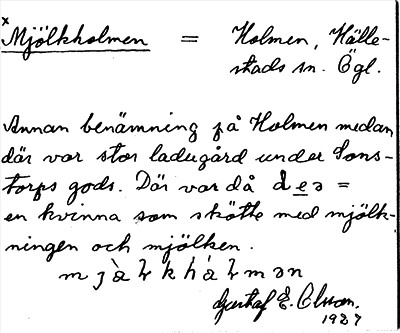 x
Mjölkholmen = Holmen, Hälle-
stads sn. Ögl.
Annan benämning på Holmen medan
där var stor ladugård under Sons-
torps gods. Där var då
en kvinna som skötte med mjölk-
ningen och mjölken.
Gustaf E. Olsson.
1927